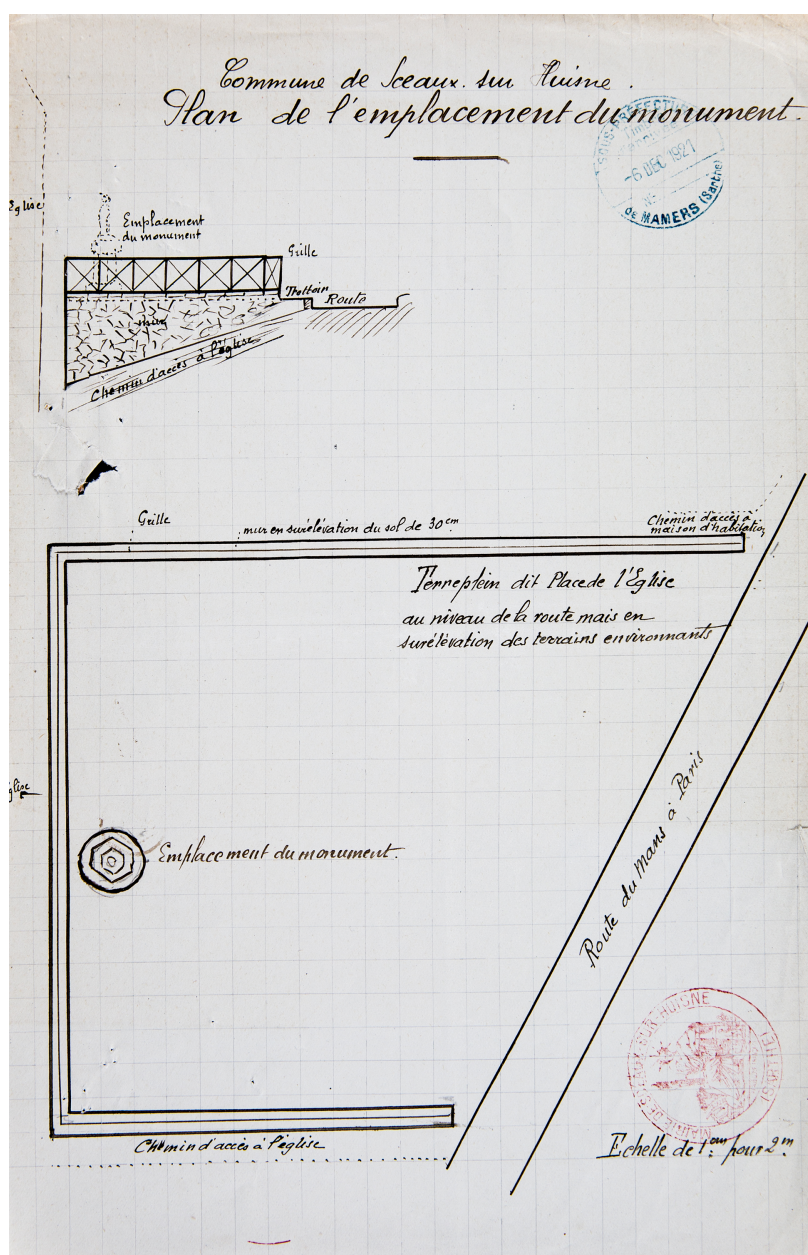 Commune de Sceaux sur Huisne.
Plan de l'emplacement du monument.
SOUS-PREFECTURE
-6 DEC 1921
de MAMERS (Sarthe)
Eglise
Emplacement
du monument
Grille
Trottoir
Route
mur
Chemin d'accès à l'église
Grille
mur en surélévation du sol de 30cm
Chemin d'accès à
maison d'habitation
Terreplein dit Place de l'Eglise
au niveau de la route mais en
surélévation des terrains environnants
glise
Emplacement du monument.
Route du Mans à Paris
MAIRIE DE SCEAUX-SUR-HUISNE
(SARTHE)
Chemin d'accès à l'église
Echelle de 1cm pour 2m.